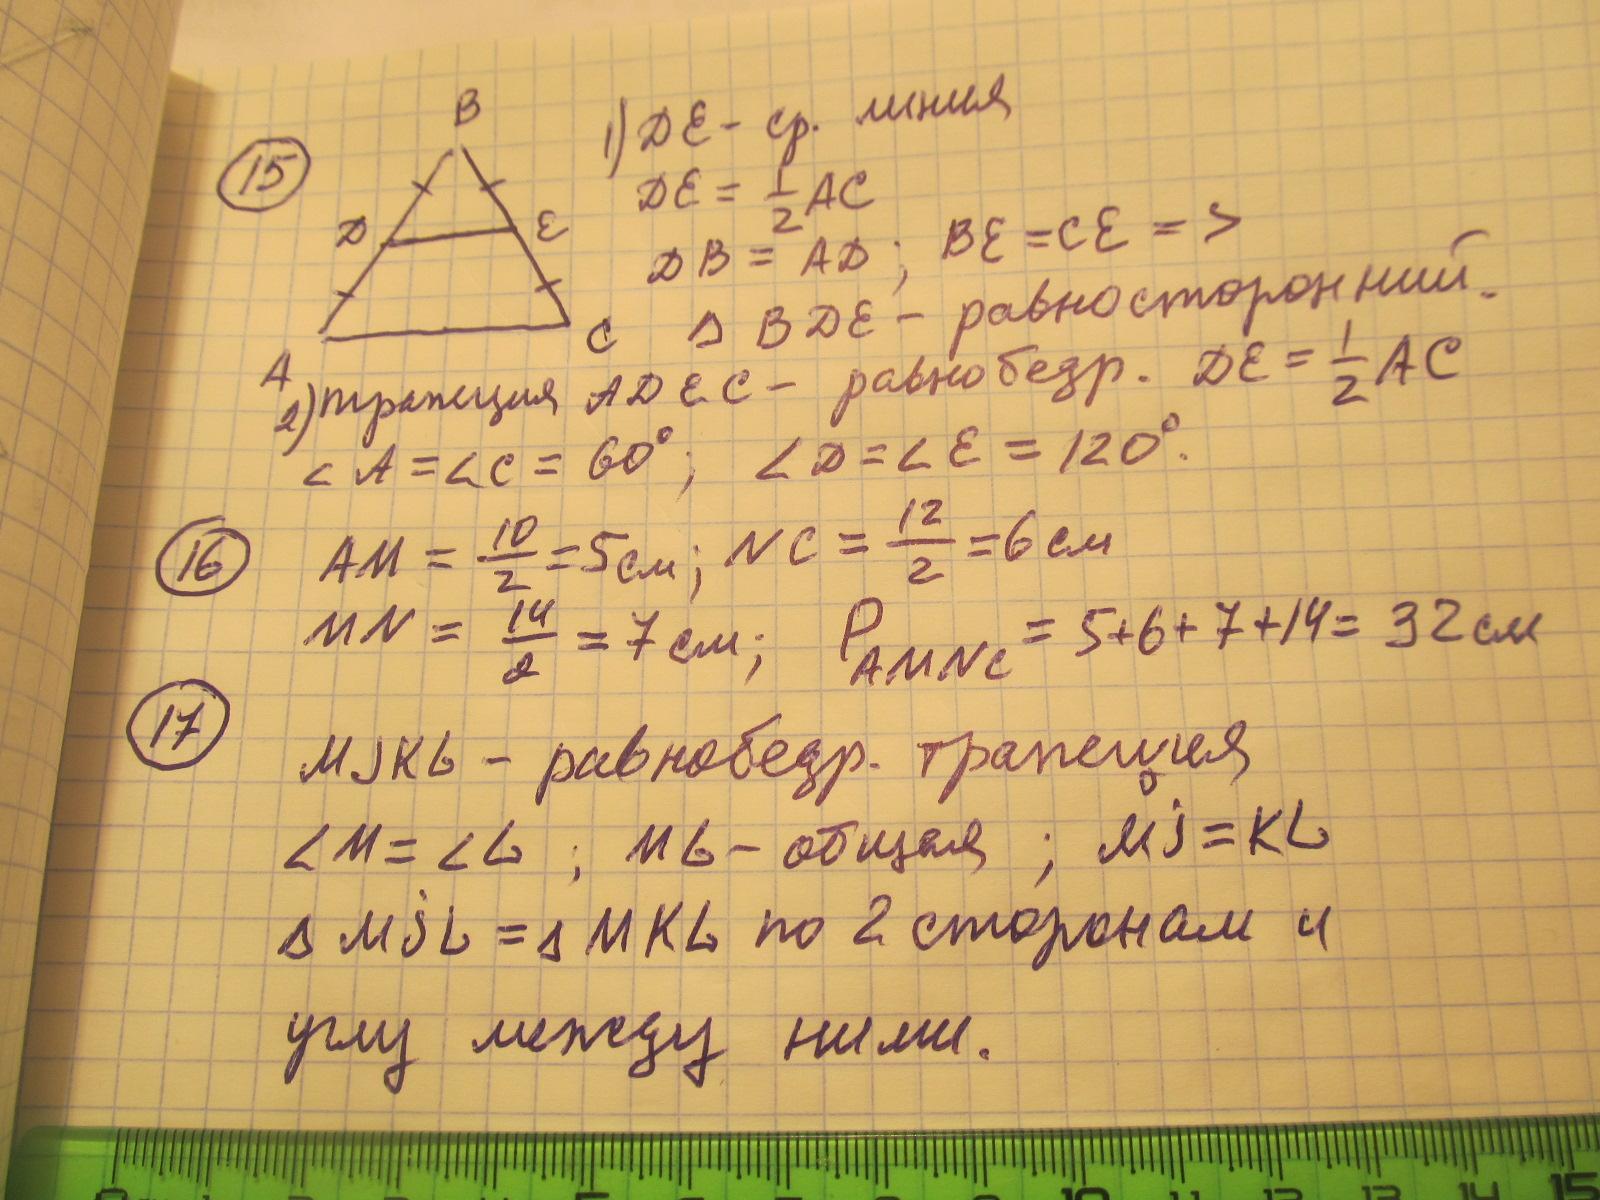 15
B
D
E
A
C
1) DE - ср. линия
DE = 1/2 AC
DB = AD; BE = CE =>
Δ BDE - равносторонний.
2) трапеция ADEC - равнобедр. DE = 1/2 AC
∠A = ∠C = 60°; ∠D = ∠E = 120°.
16
AM = 10/2 = 5 см; NC = 12/2 = 6 см
MN = 14/2 = 7 см; P AMNC = 5+6+7+14 = 32 см
17
MJKL - равнобедр. трапеция
∠M = ∠L; ML - общая; MJ = KL
Δ MJL = Δ MKL по 2 сторонам и
углу между ними.
5 10 11 12 13 14 15